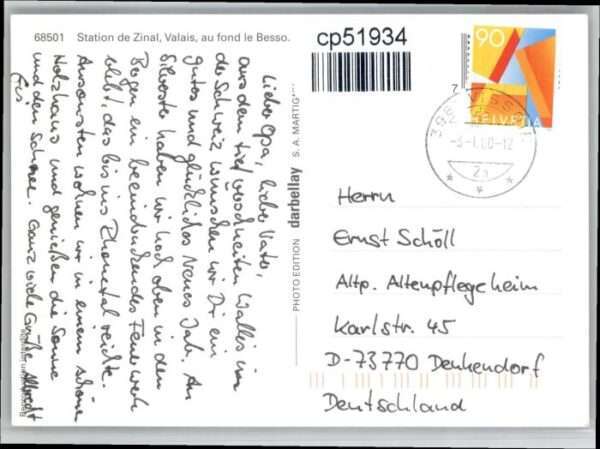 68501 Station de Zinal, Valais, au fond le Besso.
cp51934
90
HELVETIA
3961 VISSOIE
-3-1.00-12
2a
Lieber Opa, lieber Vater,
aus dem tief verschneiten Wallis in
der Schweiz wünschen wir Dir ein
gutes und glückliches Neues Jahr. An
Silvester haben wir hoch oben in den
Bergen ein beeindruckendes Feuerwerk
erlebt, das bis ins Rhonetal reichte.
Ansonsten wohnen wir in einem schönen
Holzhaus und genießen die Sonne
und den Schnee. Ganz viele Grüße Albrecht
PHOTO EDITION darbellay S. A. MARTIG
Herrn
Ernst Schöll
Altp. Altenpflegeheim
Karlstr. 45
D-73770 Denkendorf
Deutschland